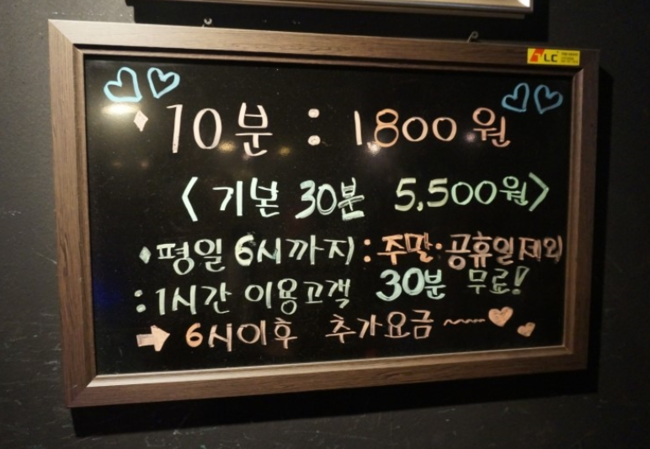 LC
10분 : 1,800원
〈기본 30분 5,500원〉
평일 6시까지 : 주말·공휴일제외
: 1시간 이용고객 30분 무료!
➡ 6시이후 추가요금 ~~~